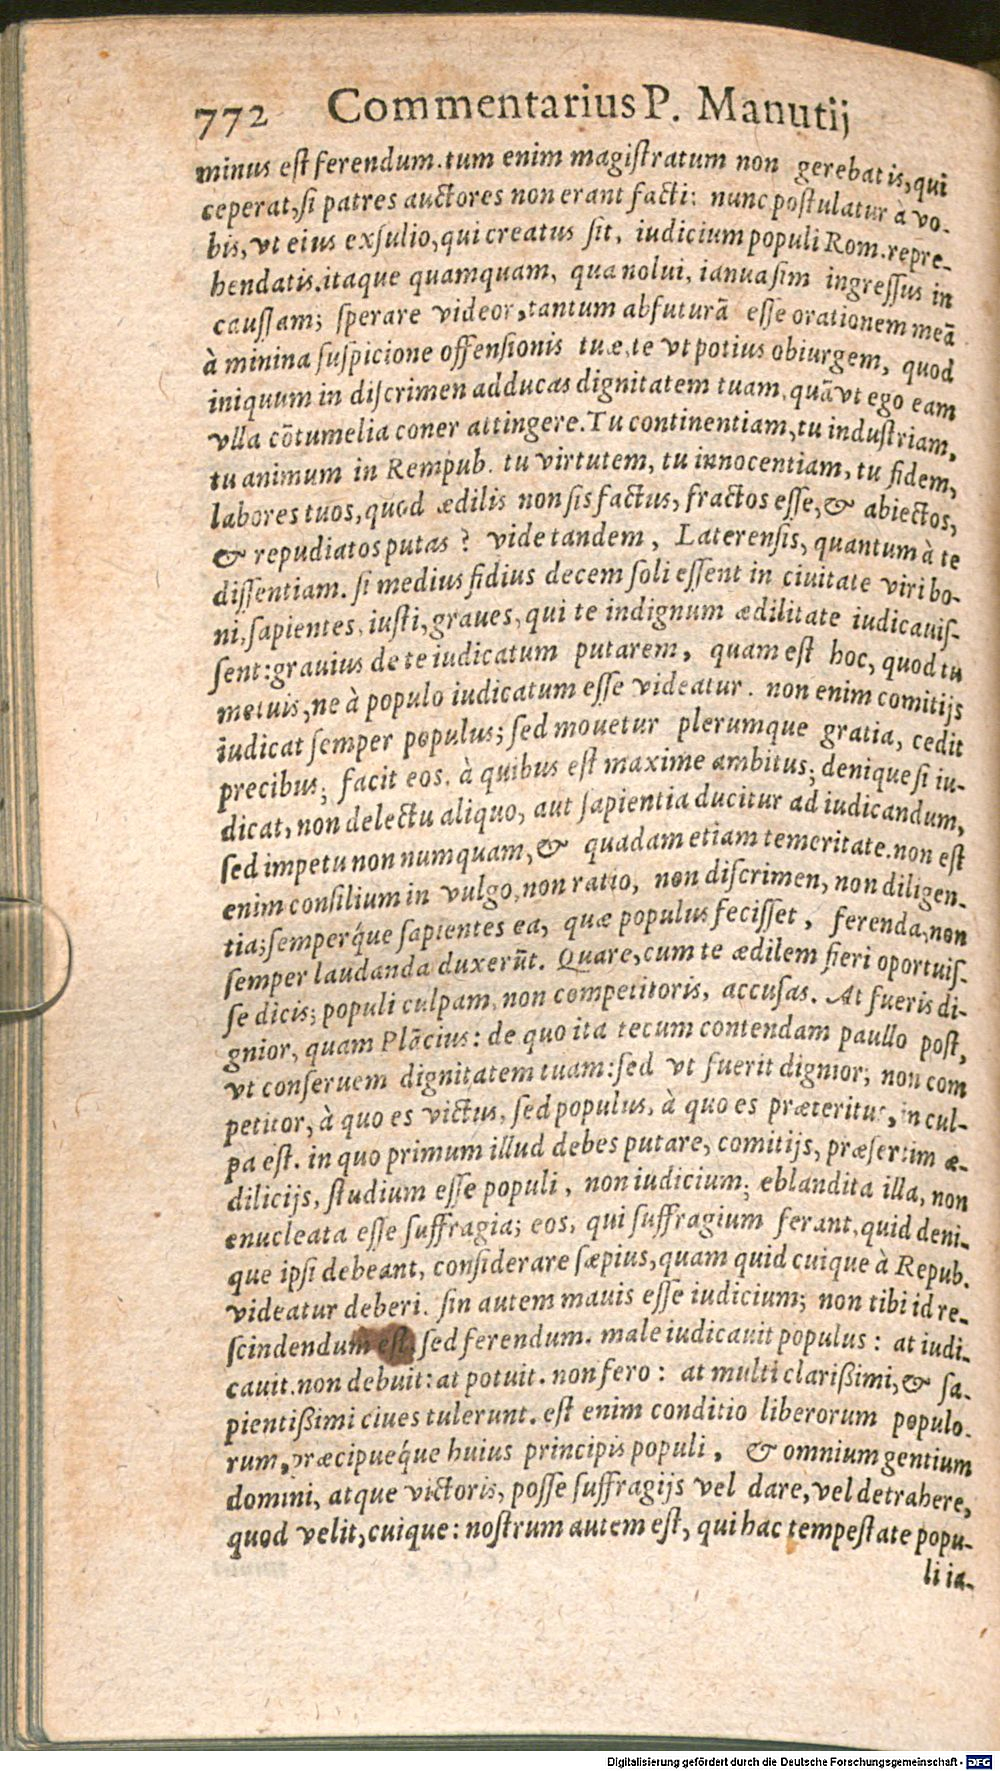 772 Commentarius P. Manutij
minus est ferendum. tum enim magistratum non gerebat is, qui
ceperat, si patres auctores non erant facti: nunc postulatur à vo-
bis, vt eius exsulio, qui creatus sit, iudicium populi Rom. repre-
hendatis. itaque quamquam, qua nolui, ianua sim ingressus in
caussam; sperare videor, tantum abfuturã esse orationem meã
à minina suspicione offensionis tuæ, te vt potius obiurgem, quod
iniquum in discrimen adducas dignitatem tuam, quã vt ego eam
vlla cõtumelia coner attingere. Tu continentiam, tu industriam,
tu animum in Rempub. tu virtutem, tu innocentiam, tu fidem,
labores tuos, quod ædilis non sis factus, fractos esse, & abiectos,
& repudiatos putas? vide tandem, Laterensis, quantum à te
dissentiam. si medius fidius decem soli essent in ciuitate viri bo-
ni, sapientes, iusti, graues, qui te indignum ædilitate iudicauis-
sent: grauius de te iudicatum putarem, quam est hoc, quod tu
metuis, ne à populo iudicatum esse videatur. non enim comitijs
iudicat semper populus; sed mouetur plerumque gratia, cedit
precibus; facit eos, à quibus est maxime ambitus; denique si iu-
dicat, non delectu aliquo, aut sapientia ducitur ad iudicandum,
sed impetu non numquam, & quadam etiam temeritate. non est
enim consilium in vulgo, non ratio, non discrimen, non diligen-
tia; semperq́ue sapientes ea, quæ populus fecisset, ferenda, non
semper laudanda duxerũt. Quare, cum te ædilem fieri oportuis-
se dicis; populi culpam, non competitoris, accusas. At fueris di-
gnior, quam Plãcius: de quo ita tecum contendam paullo post,
vt conseruem dignitatem tuam: sed vt fuerit dignior; non com
petitor, à quo es victus, sed populus, à quo es præteritus, in cul-
pa est. in quo primum illud debes putare, comitijs, præsertim æ-
dilicijs, studium esse populi, non iudicium; eblandita illa, non
enucleata esse suffragia; eos, qui suffragium ferant, quid deni-
que ipsi debeant, considerare sæpius, quam quid cuique à Repub.
videatur deberi. sin autem mauis esse iudicium; non tibi id re-
scindendum est, sed ferendum. male iudicauit populus: at iudi-
cauit. non debuit: at potuit. non fero: at multi clarißimi, & sa-
pientißimi ciues tulerunt. est enim conditio liberorum populo-
rum, præcipueq́ue huius principis populi, & omnium gentium
domini, atque victoris, posse suffragijs vel dare, vel detrahere,
quod velit, cuique: nostrum autem est, qui hac tempestate popu-
li ia-
Digitalisierung gefördert durch die Deutsche Forschungsgemeinschaft - DFG